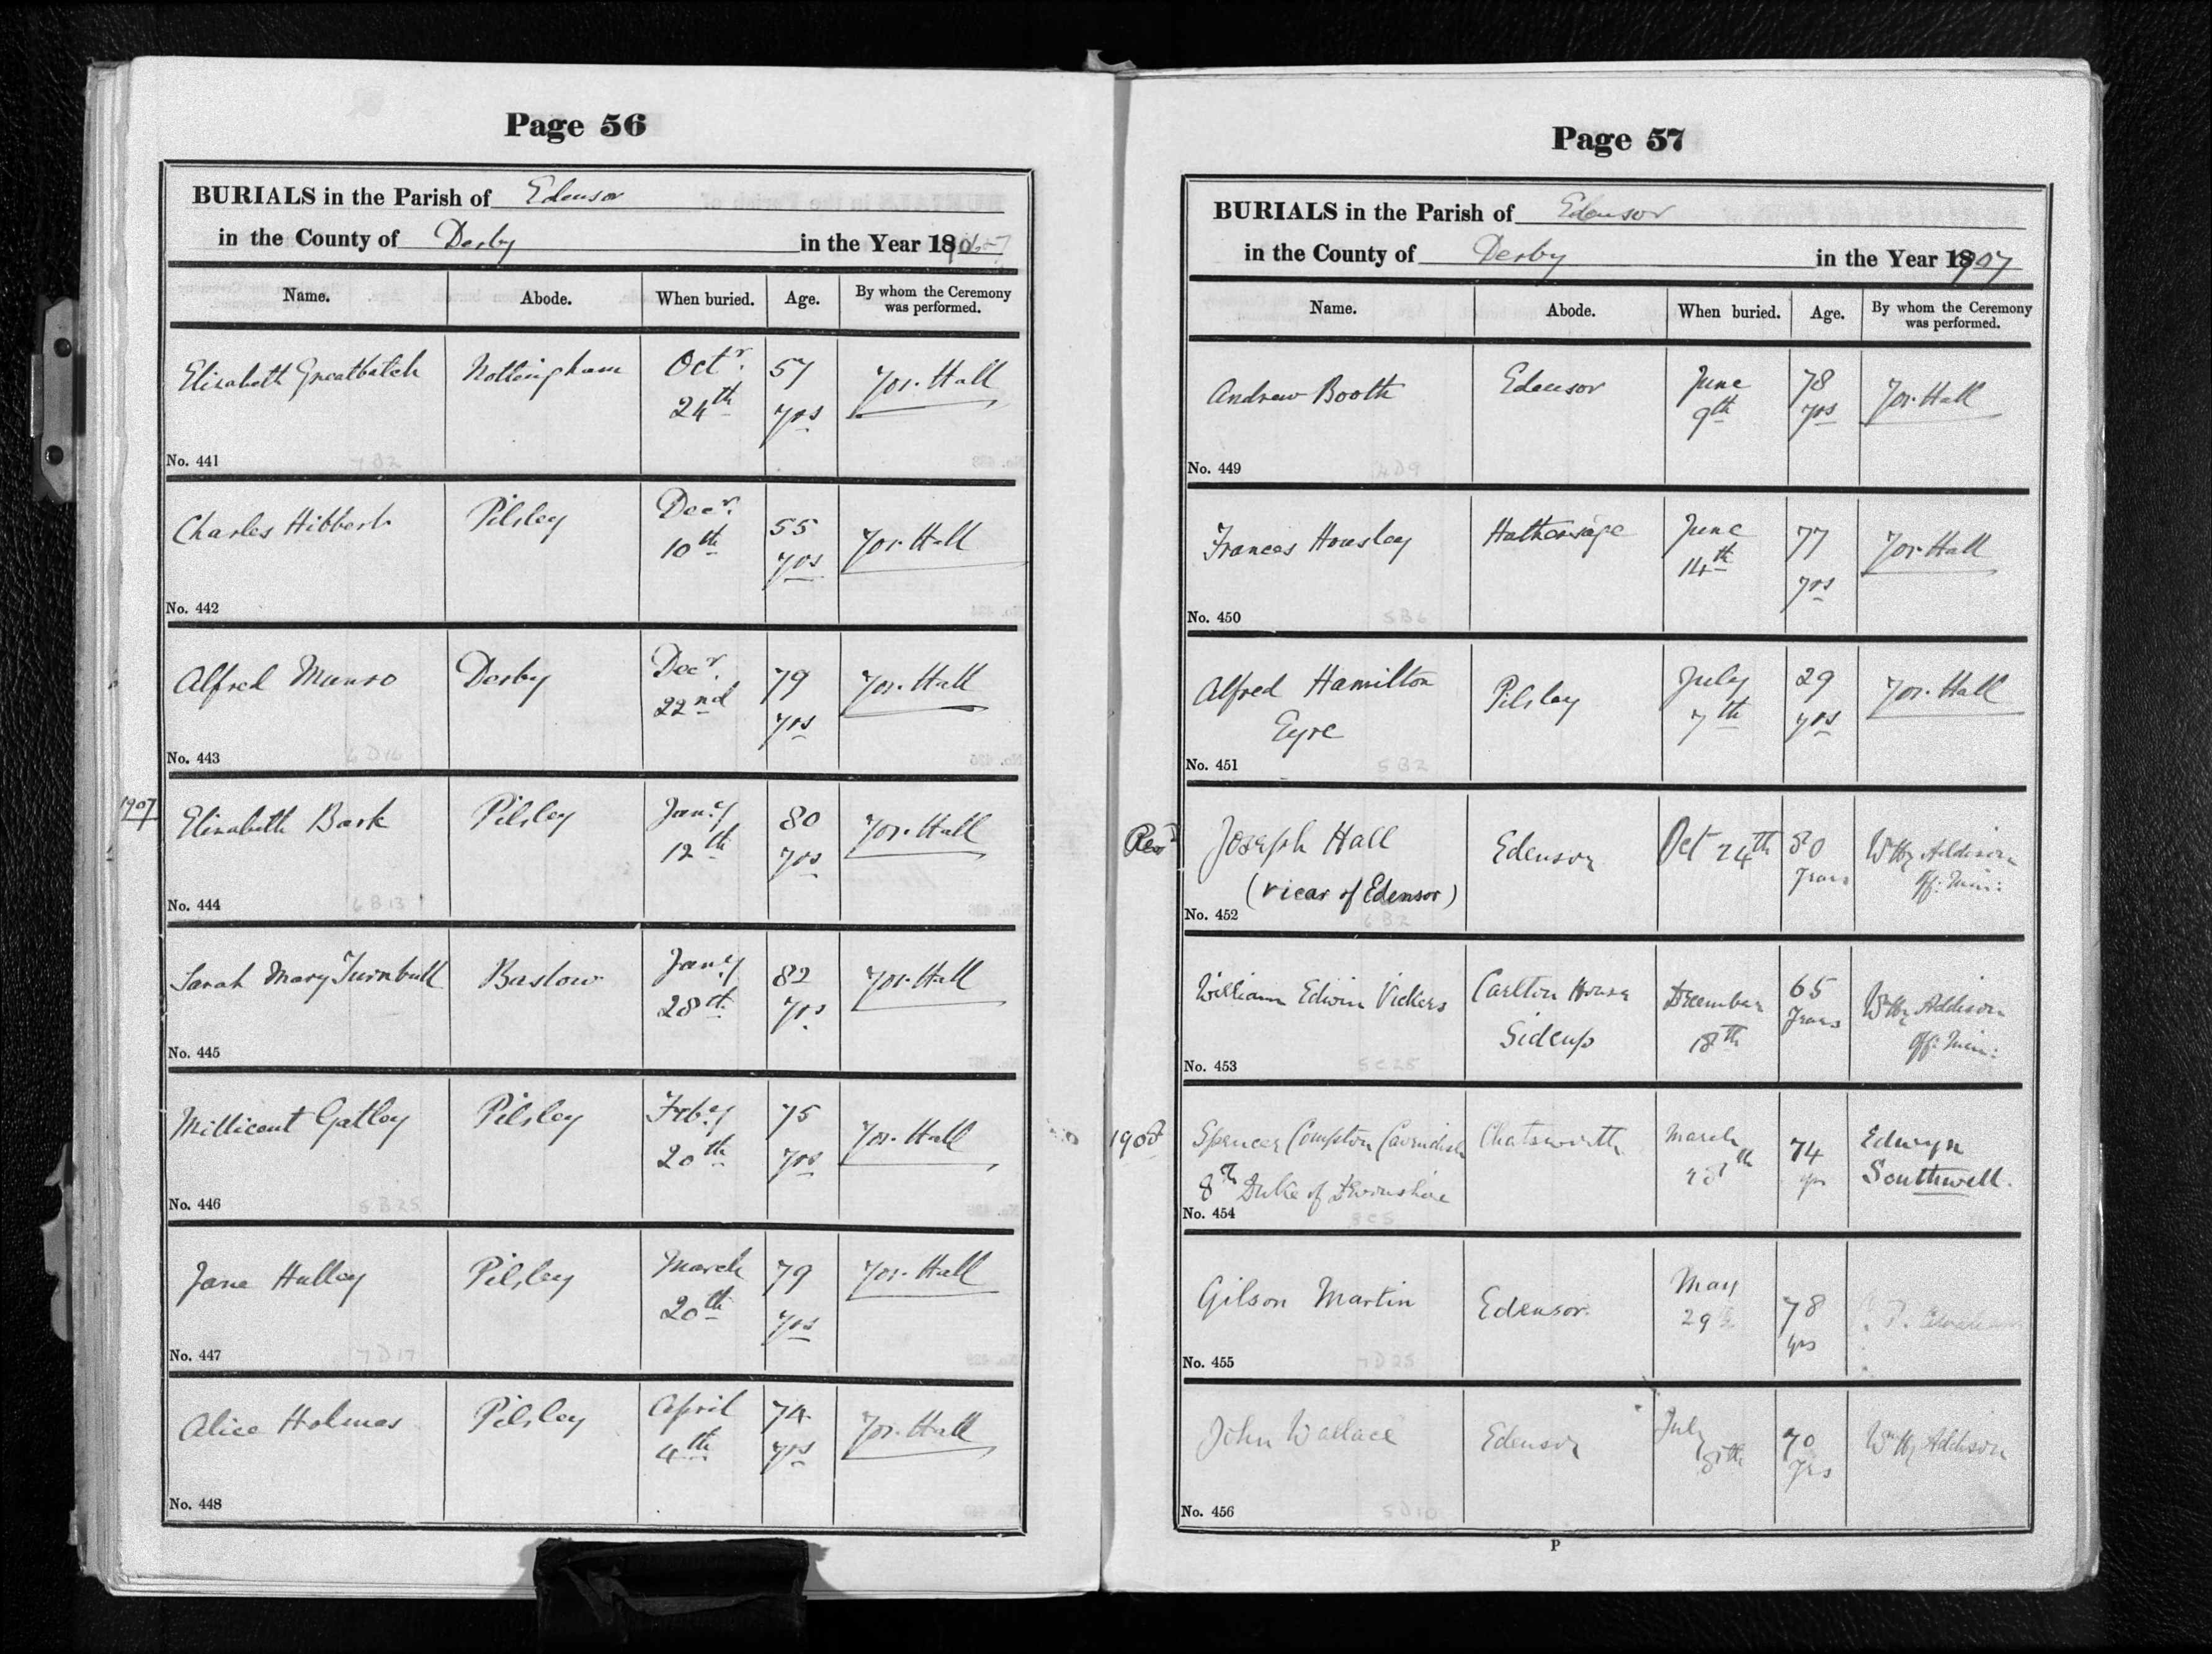 Page 56
BURIALS in the Parish of Edensor
in the County of Derby in the Year 1906-7
Name. Abode. When buried. Age. By whom the Ceremony was performed.
Elizabeth Greatbatch Nottingham Octr. 24th 57 yrs Jos. Hall
No. 441 7B2
Charles Hibbert Pilsley Decr. 10th 55 yrs Jos. Hall
No. 442
Alfred Munro Derby Decr. 22nd 79 yrs Jos. Hall
No. 443 6D16
1907
Elizabeth Bark Pilsley Jany. 12th 80 yrs Jos. Hall
No. 444 6B13
Sarah Mary Turnbull Baslow Jany. 28th 82 yrs Jos. Hall
No. 445
Millicent Gatley Pilsley Feby. 20th 75 yrs Jos. Hall
No. 446 5B25
Jane Hulley Pilsley March 20th 79 yrs Jos. Hall
No. 447 7D17
Alice Holmes Pilsley April 4th 74 yrs Jos. Hall
No. 448
Page 57
BURIALS in the Parish of Edensor
in the County of Derby in the Year 1907
Name. Abode. When buried. Age. By whom the Ceremony was performed.
Andrew Booth Edensor June 9th 78 yrs Jos. Hall
No. 449 4D9
Frances Housley Hathersage June 14th 77 yrs Jos. Hall
No. 450 5B6
Alfred Hamilton Eyre Pilsley July 7th 29 yrs Jos. Hall
No. 451 5B2
Revd Joseph Hall Edensor Oct 24th 80 years Addison Off: Min:
(Vicar of Edensor)
No. 452 6B2
William Edwin Vickers Carlton House Sidcup December 18th 65 years Addison Off: Min:
No. 453 5C25
1908
Spencer Compton Cavendish Chatsworth March 28th 74 yrs Edwyn Southwell.
8th Duke of Devonshire
No. 454 8C5
Gilson Martin Edensor. May 29th 78 yrs
No. 455 7D25
John Wallace Edensor July 8th 70 yrs Addison
No. 456 5D10
P